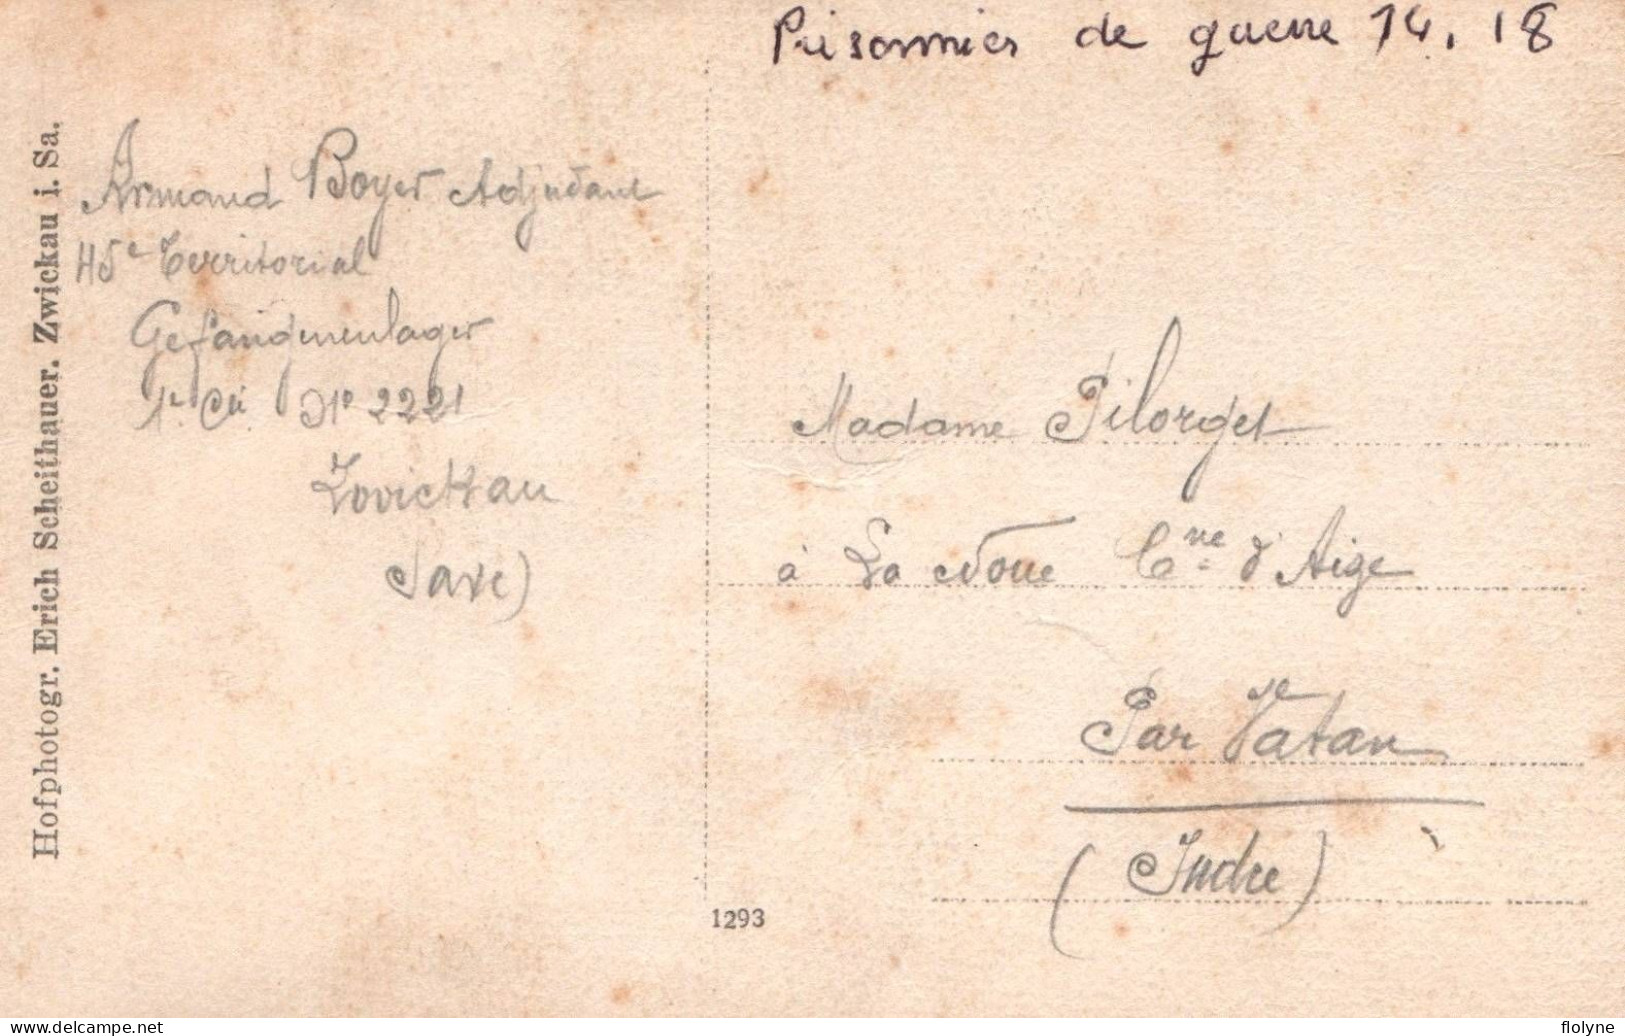 Prisonnier de guerre 14. 18
Hofphotogr. Erich Scheithauer. Zwickau i. Sa.
Armand Boyer Adjudant
45e Territorial
Gefangenenlager
1e Cie No 2221
Zwickau
Saxe)
Madame Pilorget
à La Noue Cne d'Aize
Par Vatan
(Indre)
1293
delcampe.net
floline